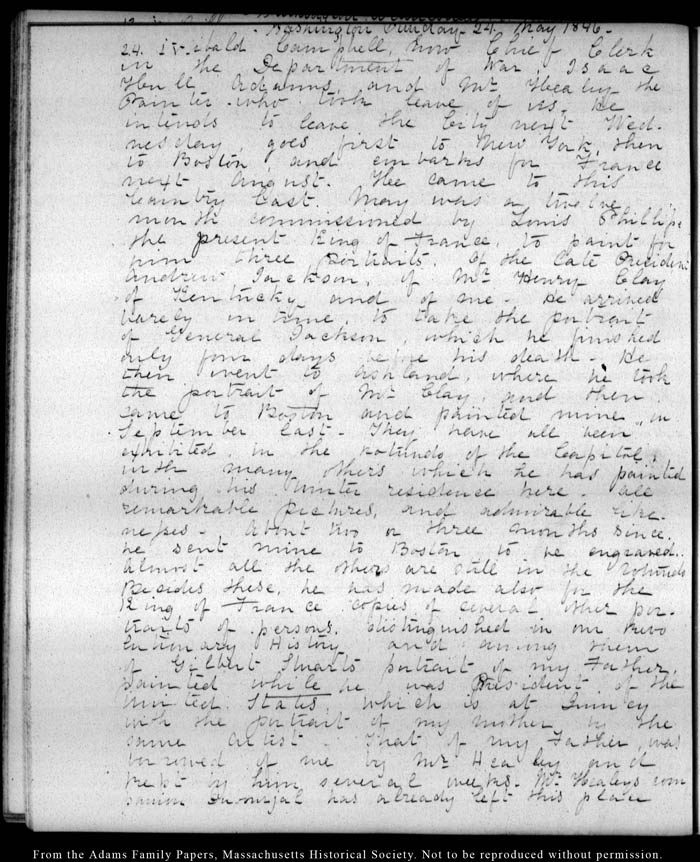 Washington Sunday 24. May 1846.
24. IV. Archibald Campbell, now Chief Clerk
in the Department of War, Isaac
Hull Adams, and Mr. Healy the
Painter who took leave of us. He
intends to leave the City next Wed-
nesday, goes first to New York, then
to Boston, and embarks for France
next August. He came to this
Country last. May was a twelve
month commissioned by Louis Phillipe
the present King of France, to paint for
him three portraits. Of the late President
Andrew Jackson, of Mr. Henry Clay
of Kentucky and of me. He arrived
barely in time to take the portrait
of General Jackson, which he finished
only four days before his death. He
then went to Ashland, where he took
the portrait of Mr. Clay, and then
came to Boston and painted mine, in
September last. They have all been
exhibited in the Rotunda of the Capitol,
with many others which he has painted
during his winter residence here. All
remarkable pictures, and admirable like-
nesses. About two or three months since,
he sent mine to Boston to be engraved.
Almost all the others are still in the Rotunda
Besides these, he has made also for the
King of France copies of several other por-
traits of persons, distinguished in our Revo
lutionary History and among them
of Gilbert Stuarts portrait of my Father,
painted while he was President of the
United States, which is at Quincy
with the portrait of my mother by the
same artist. That of my Father, was
borrowed of me by Mr. Healy and
kept by him several weeks. Mr. Healys com
panion has already left this place
From the Adams Family Papers, Massachusetts Historical Society. Not to be reproduced without permission.